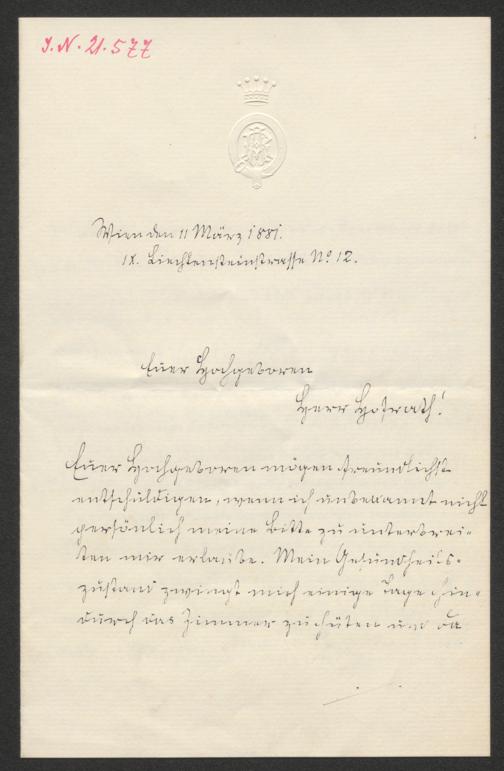 J.N. 21.577
Wien den 11 März 1881.
IX. Liechtensteinstrasse No 12.
Euer Hochgeboren
Herr Hofrath!
Euer Hochgeboren mögen freundlichst
entschuldigen, wenn ich unbekannt nicht
persönlich meine Bitte zu unterbrei-
ten mir erlaube. Mein Gesundheits-
zustand zwingt mich einige Tage hin-
durch das Zimmer zu hüten und da